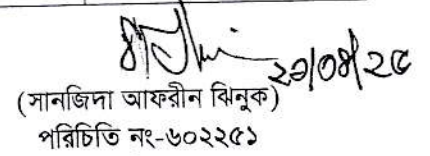 ২১/০৪/২৫
(সানজিদা আফরীন ঝিনুক)
পরিচিতি নং-৬০২২৫১